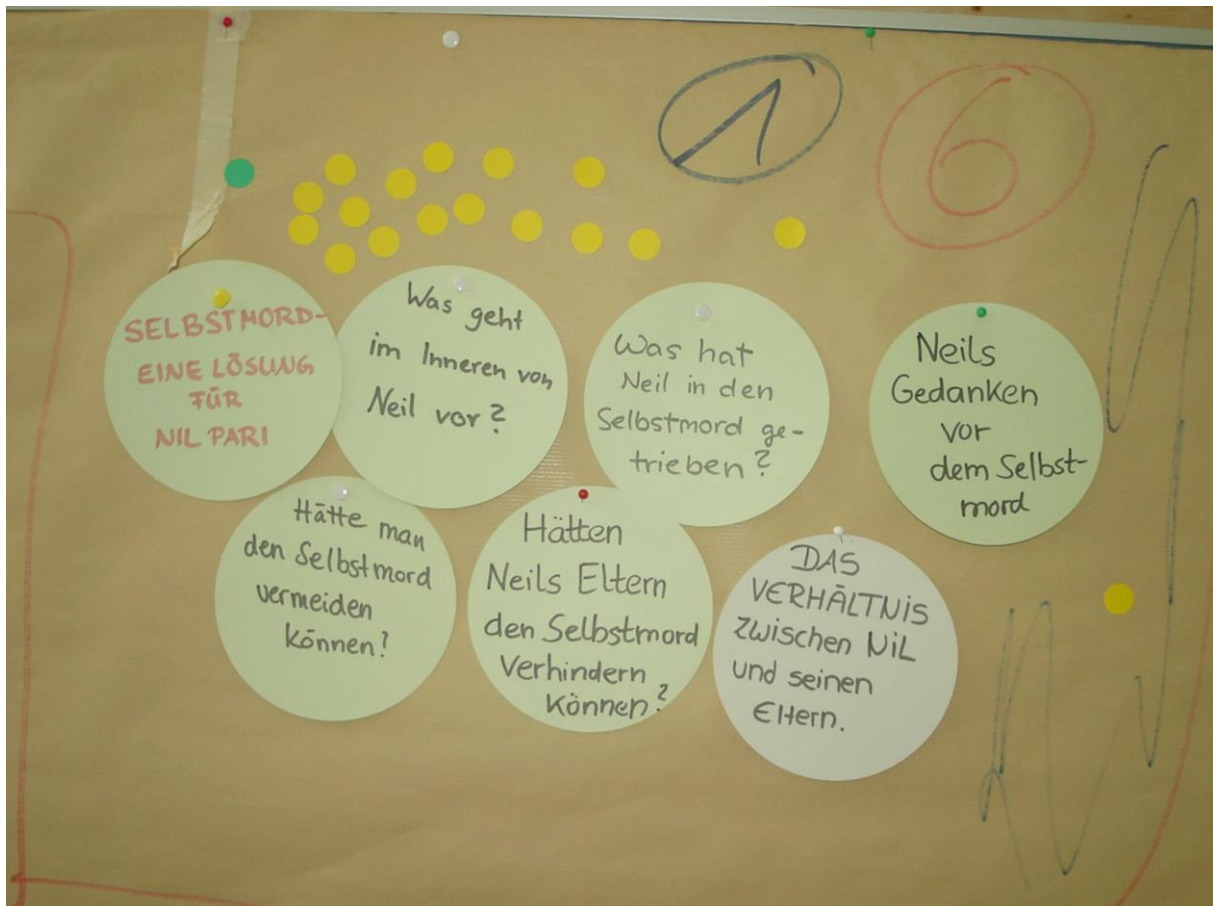 1
6
SELBSTMORD-
EINE LÖSUNG
FÜR
NIL PARI
Was geht
im Inneren von
Neil vor?
Was hat
Neil in den
Selbstmord ge-
trieben?
Neils
Gedanken
vor
dem Selbst-
mord
Hätte man
den Selbstmord
vermeiden
können?
Hätten
Neils Eltern
den Selbstmord
verhindern
können?
DAS
VERHÄLTNIS
zwischen NiL
und seinen
Eltern.